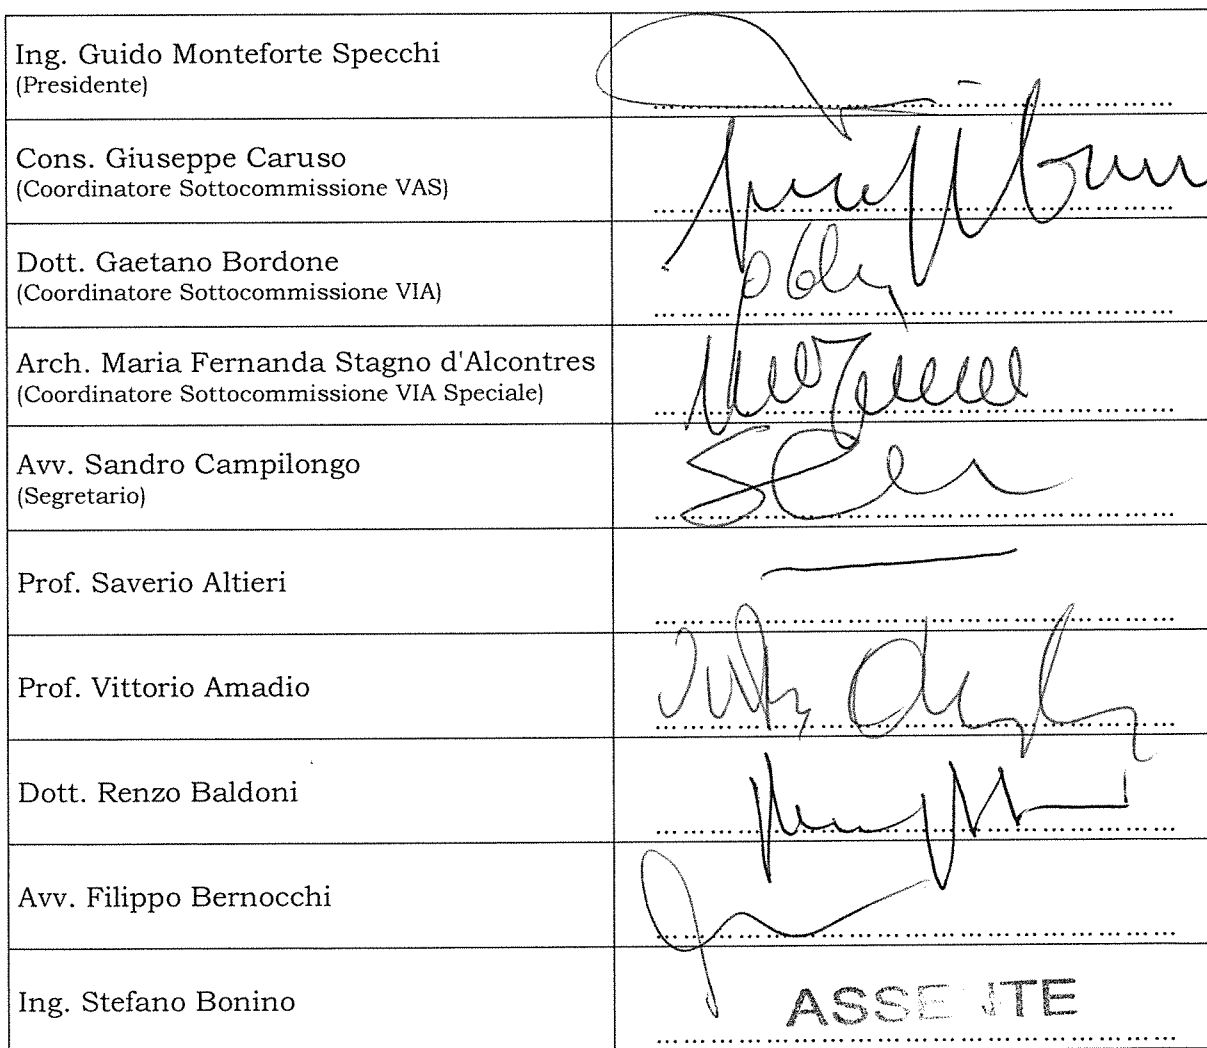 Ing. Guido Monteforte Specchi
(Presidente)
Cons. Giuseppe Caruso
(Coordinatore Sottocommissione VAS)
Dott. Gaetano Bordone
(Coordinatore Sottocommissione VIA)
Arch. Maria Fernanda Stagno d'Alcontres
(Coordinatore Sottocommissione VIA Speciale)
Avv. Sandro Campilongo
(Segretario)
Prof. Saverio Altieri
Prof. Vittorio Amadio
Dott. Renzo Baldoni
Avv. Filippo Bernocchi
Ing. Stefano Bonino
ASSENTE